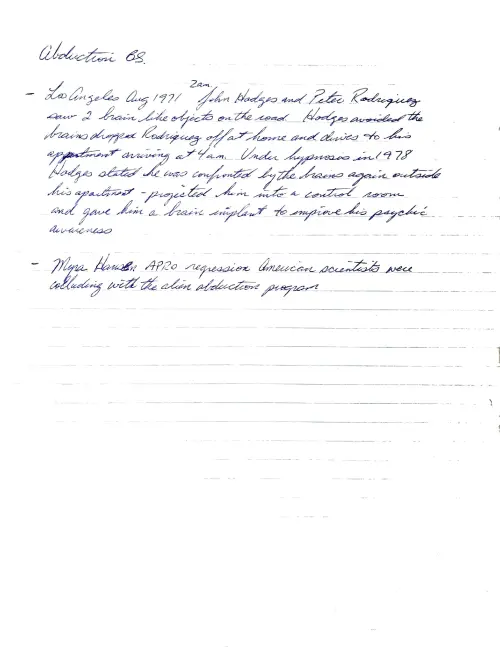 Abduction BS.
2am
- Los Angeles Aug 1971 John Hodges and Peter Rodriguez
saw 2 brain like objects on the road. Hodges avoided the
brains dropped Rodriguez off at home and drives to his
appartment arriving at 4am. Under hypnosis in 1978
Hodges stated he was confronted by the brains again outside
his apartment - projected him into a control room
and gave him a brain implant to improve his psychic
awareness
- Myra Hansen APRO regression American scientists were
colluding with the alien abduction program